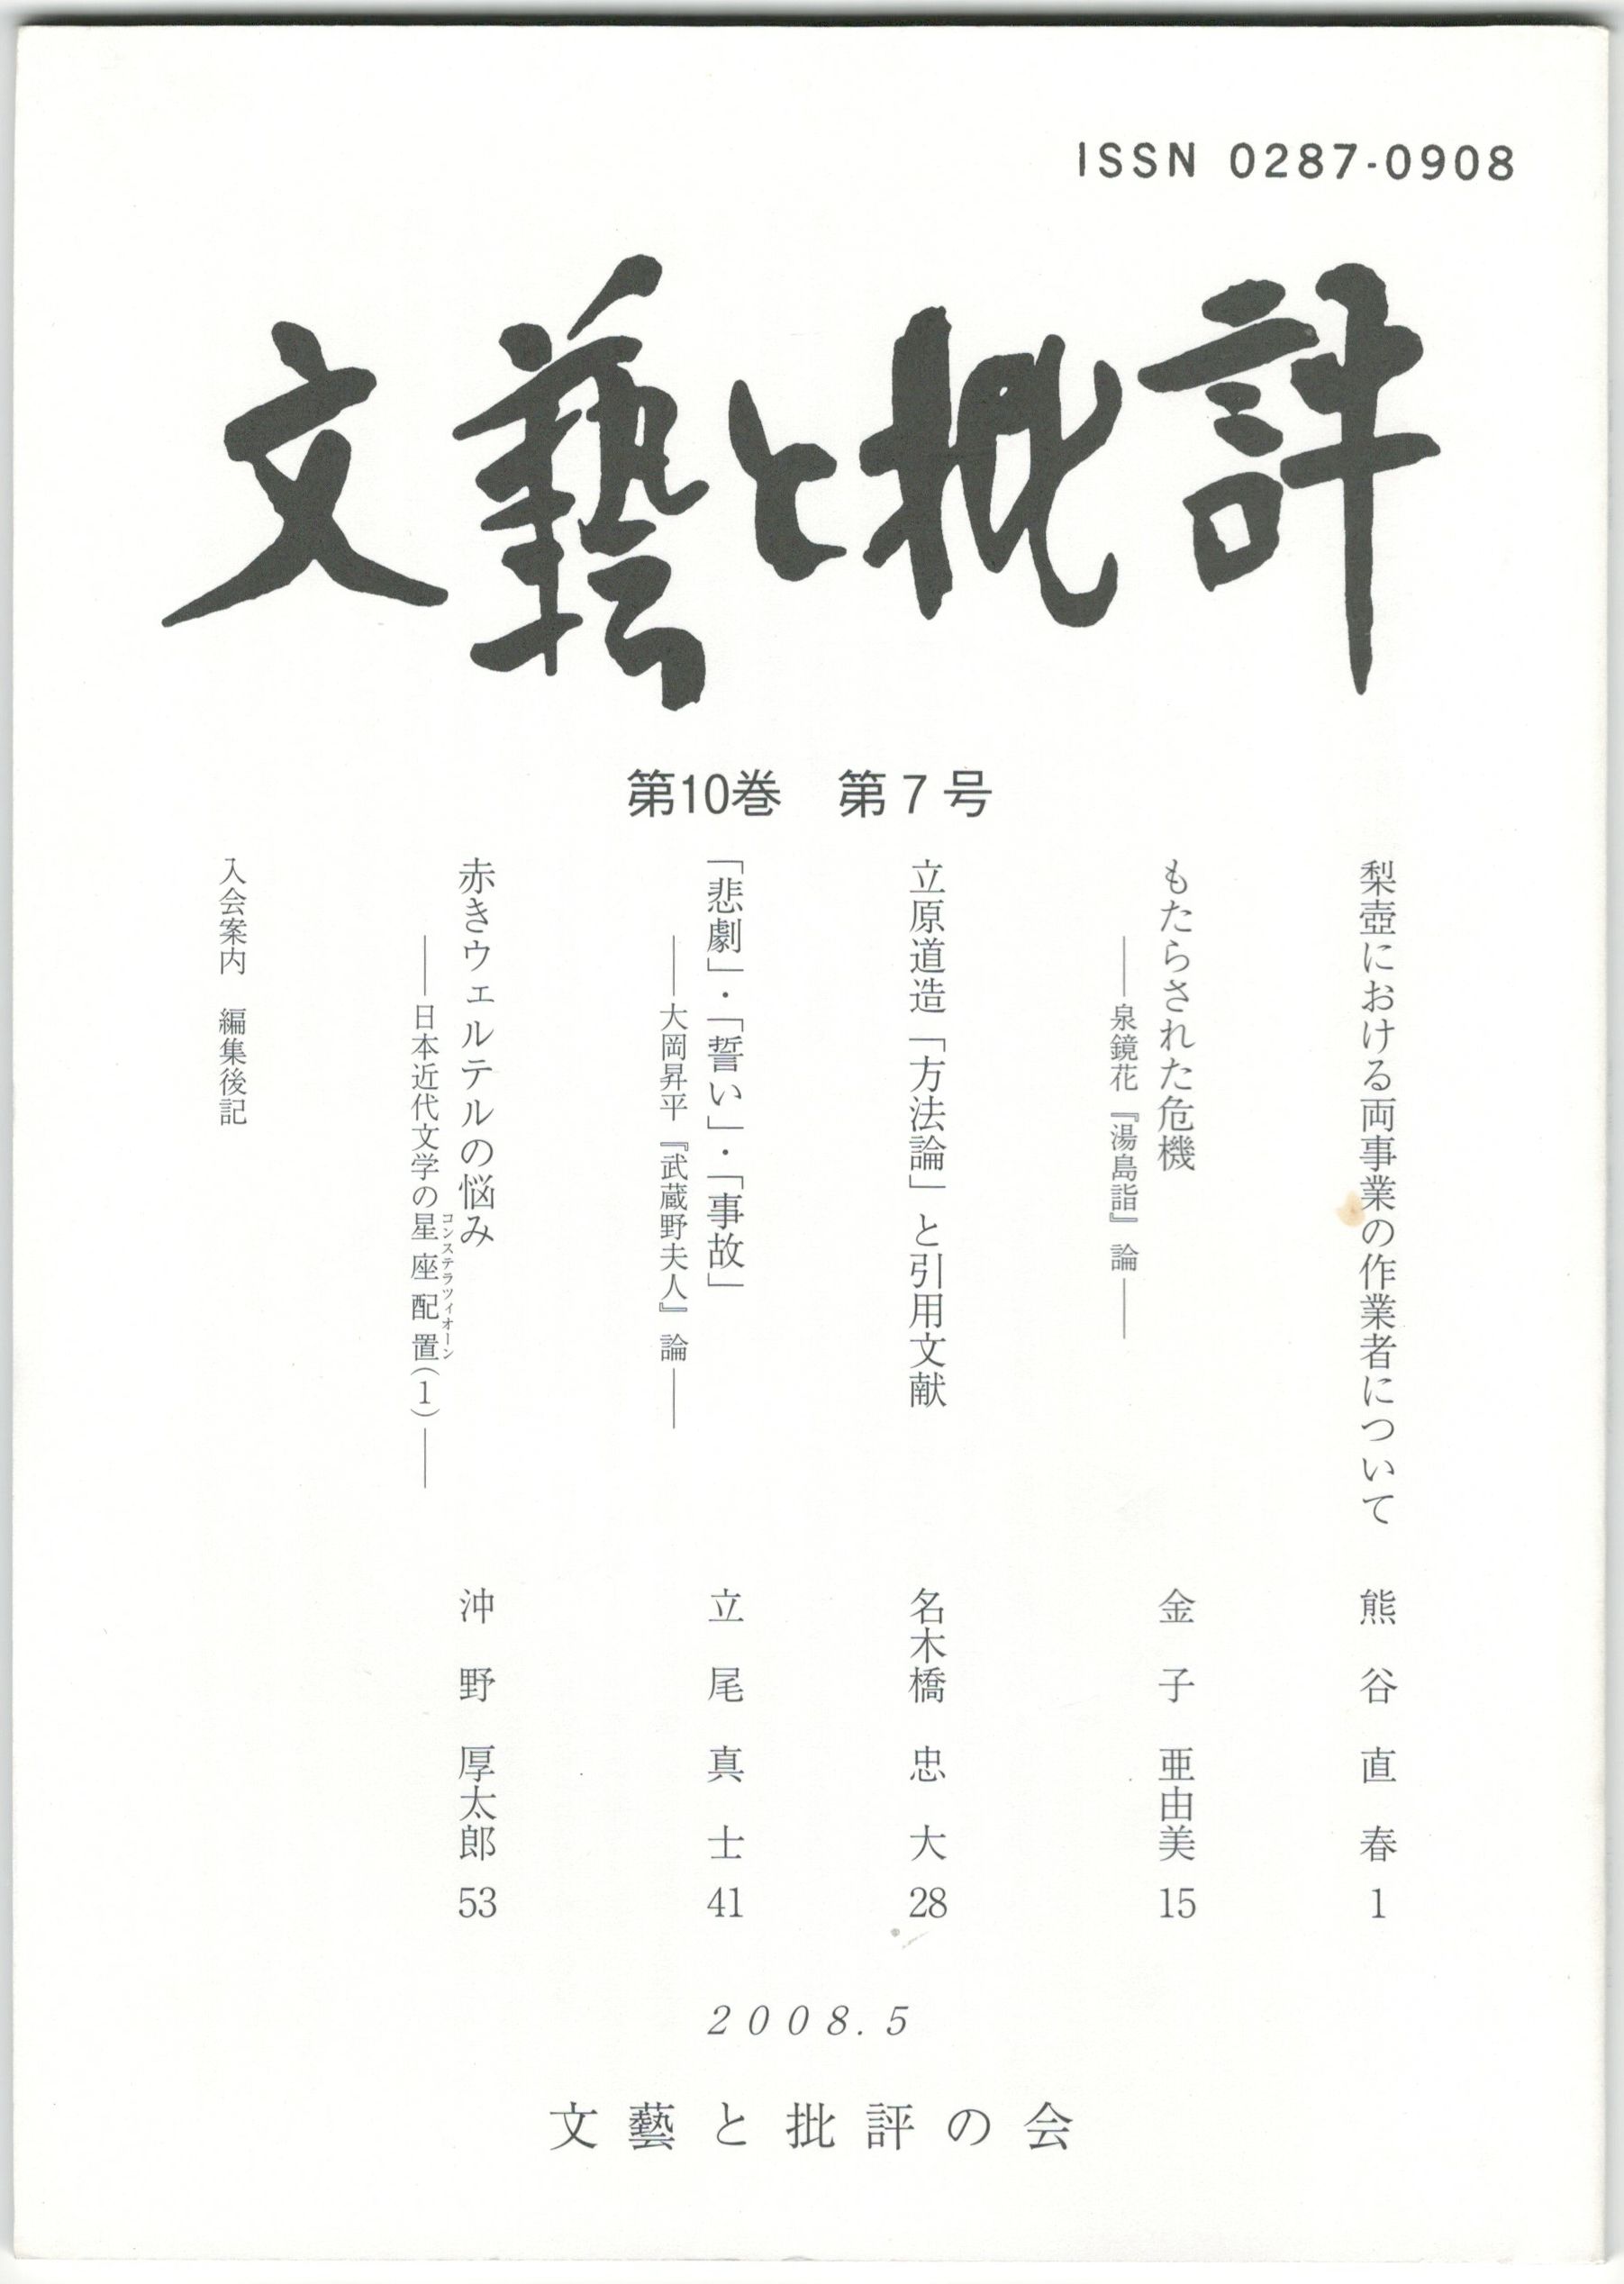 ISSN 0287-0908
文藝と批評
第10巻 第7号
梨壺における両事業の作業者について 熊谷直春 1
もたらされた危機 金子亜由美 15
――泉鏡花『湯島詣』論――
立原道造「方法論」と引用文献 名木橋忠大 28
「悲劇」・「誓い」・「事故」 立尾真士 41
――大岡昇平『武蔵野夫人』論――
赤きウェルテルの悩み 沖野厚太郎 53
――日本近代文学の星座配置(1)――
コンステラツィオーン
入会案内 編集後記
2008.5
文藝と批評の会